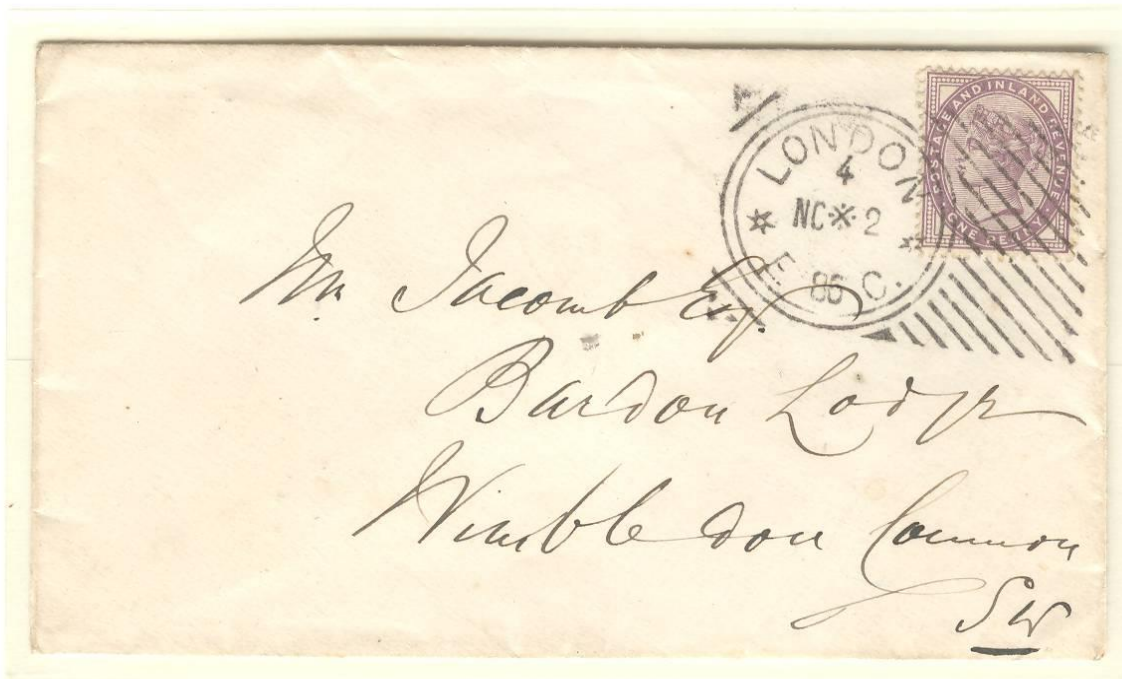 POSTAGE AND INLAND REVENUE
ONE PENNY
LONDON
4
NO 2
86
E.C.
Jacomb Esq.
Bardon Lodge
Wimbledon Common
SW